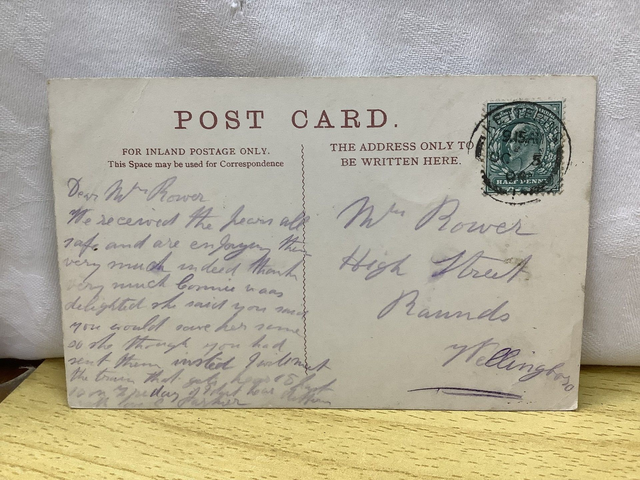 POST CARD.
FOR INLAND POSTAGE ONLY.
This Space may be used for Correspondence
THE ADDRESS ONLY TO
BE WRITTEN HERE.
HALF PENNY
Dear Mrs Rower
We received the pears all
safe and are enjoying them
very much indeed thank
very much Connie was
delighted she said you said
you would save her some
so she though you had
sent them insted
the train that gets
Mrs Rower
High Street
Raunds
Wellingboro